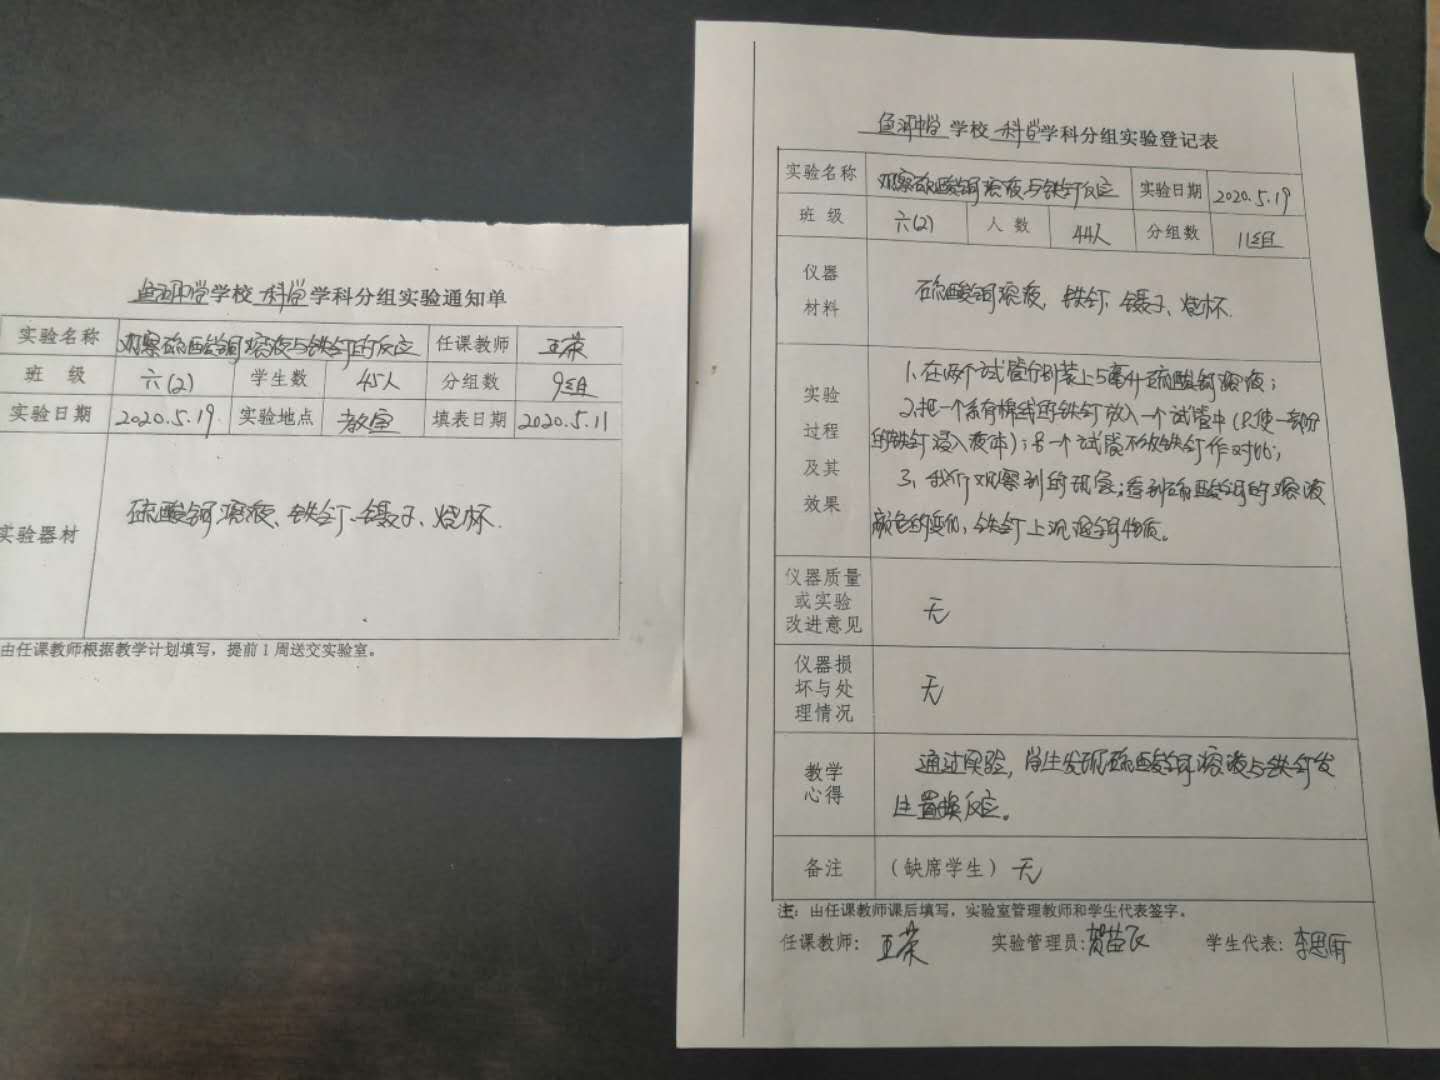 鱼河中学学校 科学学科分组实验通知单
实验名称 观察硫酸铜溶液与铁钉的反应 任课教师 王荣
班 级 六(2) 学生数 45人 分组数 9组
实验日期 2020.5.19 实验地点 教室 填表日期 2020.5.11
实验器材 硫酸铜溶液、铁钉、镊子、烧杯.
由任课教师根据教学计划填写，提前1周送交实验室。
鱼河中学 学校 科学学科分组实验登记表
实验名称 观察硫酸铜溶液与铁钉反应 实验日期 2020.5.19
班 级 六(2) 人 数 44人 分组数 11组
仪器
材料
硫酸铜溶液、铁钉、镊子、烧杯.
实验
过程
及其
效果
1、在两个试管分别装上5毫升硫酸铜溶液；
2、把一个系有棉线的铁钉放入一个试管中(只使一部份
的铁钉浸入液体)；另一个试管不放铁钉作对比；
3、我们观察到的现象；看到硫酸铜的溶液
颜色的变化、铁钉上沉 铜物质。
仪器质量
或实验
改进意见
无
仪器损
坏与处
理情况
无
教学
心得
通过实验，学生发现硫酸铜溶液与铁钉发
生置换反应。
备注 （缺席学生）无
注：由任课教师课后填写，实验室管理教师和学生代表签字。
任课教师： 王荣 实验管理员：贺苗飞 学生代表：李思